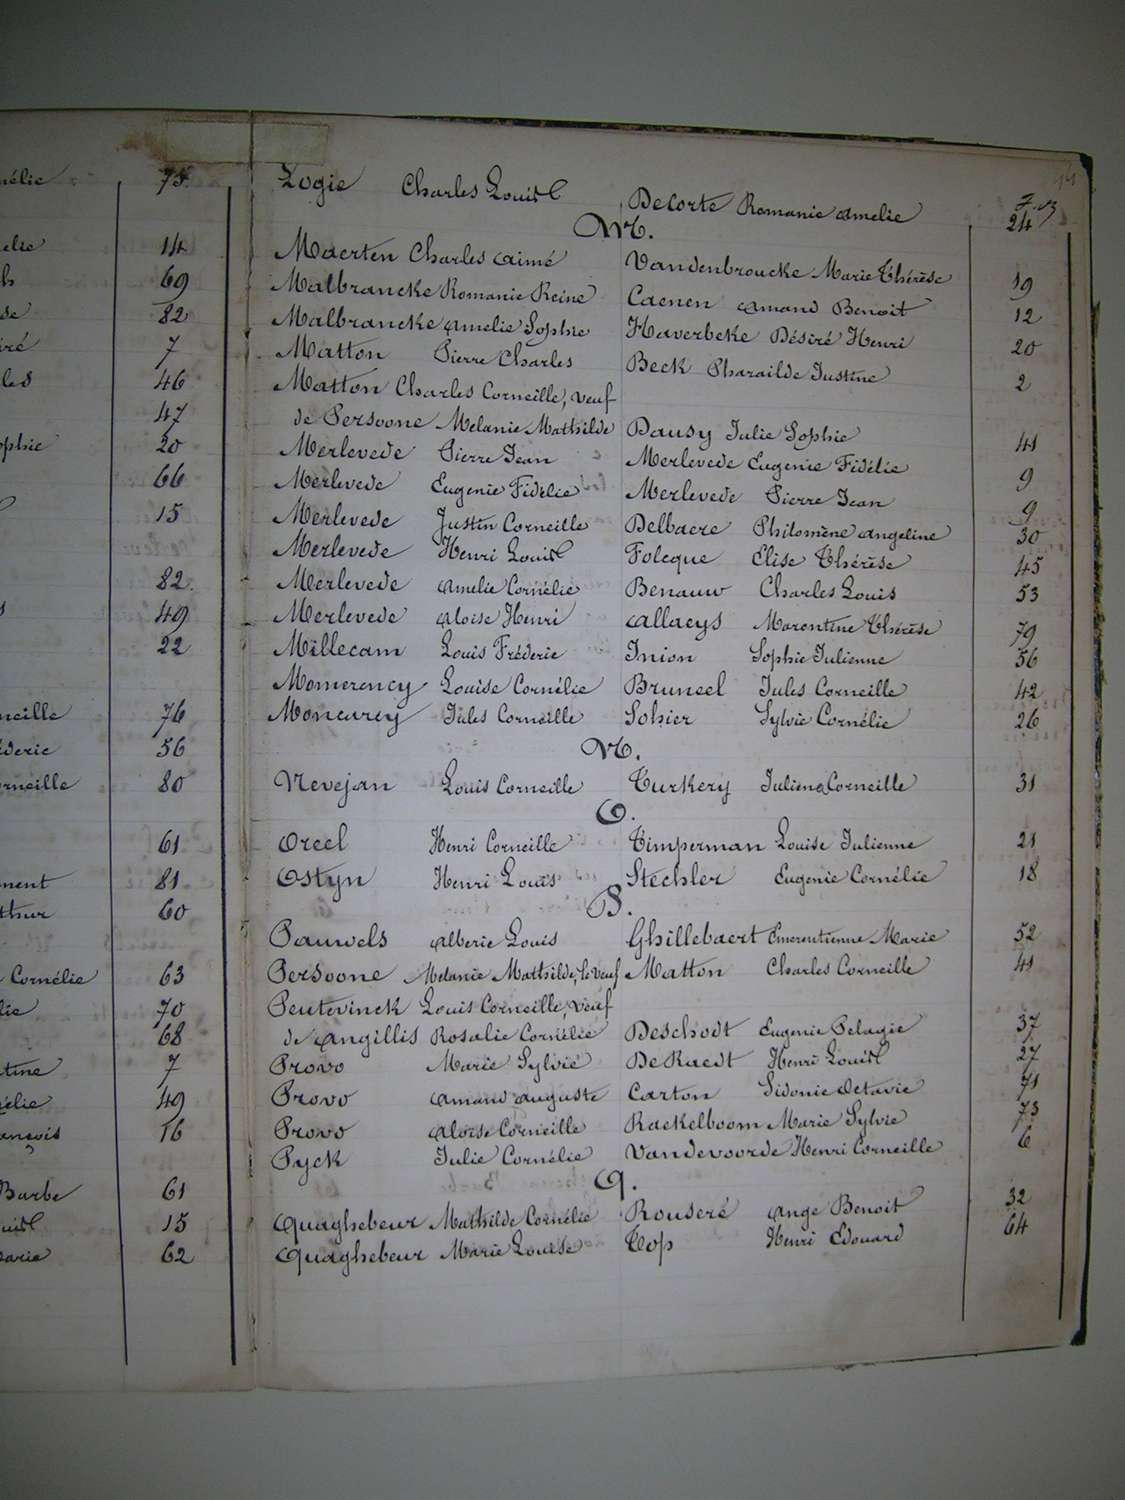 élie 75
elie 14
h 69
se 82
ré 7
les 46
47
ophie 20
66
15
82.
s 49
22
neille 76
éderic 56
orneille 80
61
ment 81
thur 60
Cornélie 63
lie 70
68
tine 7
élie 49
ançois 16
Barbe 61
ouis 15
arie 62
Logie Charles Louis Decorte Romanie Amelie 24
M.
Maerten Charles Aimé Vandenbroucke Marie Thérèse 19
Malbrancke Romanie Reine Caenen Amand Benoit 12
Malbrancke Amelie Sophie Haverbeke Désiré Henri 20
Matton Pierre Charles Beck Pharailde Justine 2
Matton Charles Corneille, veuf
de Persoone Melanie Mathilde Dausy Julie Sophie 41
Merlevede Pierre Jean Merlevede Eugenie Fidélie 9
Merlevede Eugenie Fidélie Merlevede Pierre Jean 9
Merlevede Justin Corneille Delbaere Philomène Angeline 30
Merlevede Henri Louis Folcque Elise Thérèse 45
Merlevede Amelie Cornélie Benauw Charles Louis 53
Merlevede Aloise Henri Allaeys Marentine Thérèse 79
Millecam Louis Fréderic Inion Sophie Julienne 56
Momerency Louise Cornélie Bruneel Jules Corneille 42
Moncurey Jules Corneille Sohier Sylvie Cornélie 26
N.
Nevejan Louis Corneille Turkery Julien Corneille 31
O.
Oreel Henri Corneille Timperman Louise Julienne 21
Ostyn Henri Louis Stechler Eugenie Cornélie 18
P.
Pauwels Alberic Louis Ghillebaert Emerentienne Marie 52
Persoone Melanie Mathilde, le veuf Matton Charles Corneille 41
Peutevinck Louis Corneille, veuf
de Angillis Rosalie Cornélie Deschodt Eugenie Pelagie 37
Provo Marie Sylvie DeRaedt Henri Louis 27
Provo Amand Auguste Carton Sidonie Octavie 71
Provo Aloise Corneille Raekelboom Marie Sylvie 73
Pyck Julie Cornélie Vandevoorde Henri Corneille 6
Q.
Quaghebeur Mathilde Cornélie Rouseré Ange Benoit 32
Quaghebeur Marie Louise Top Henri Edouard 64